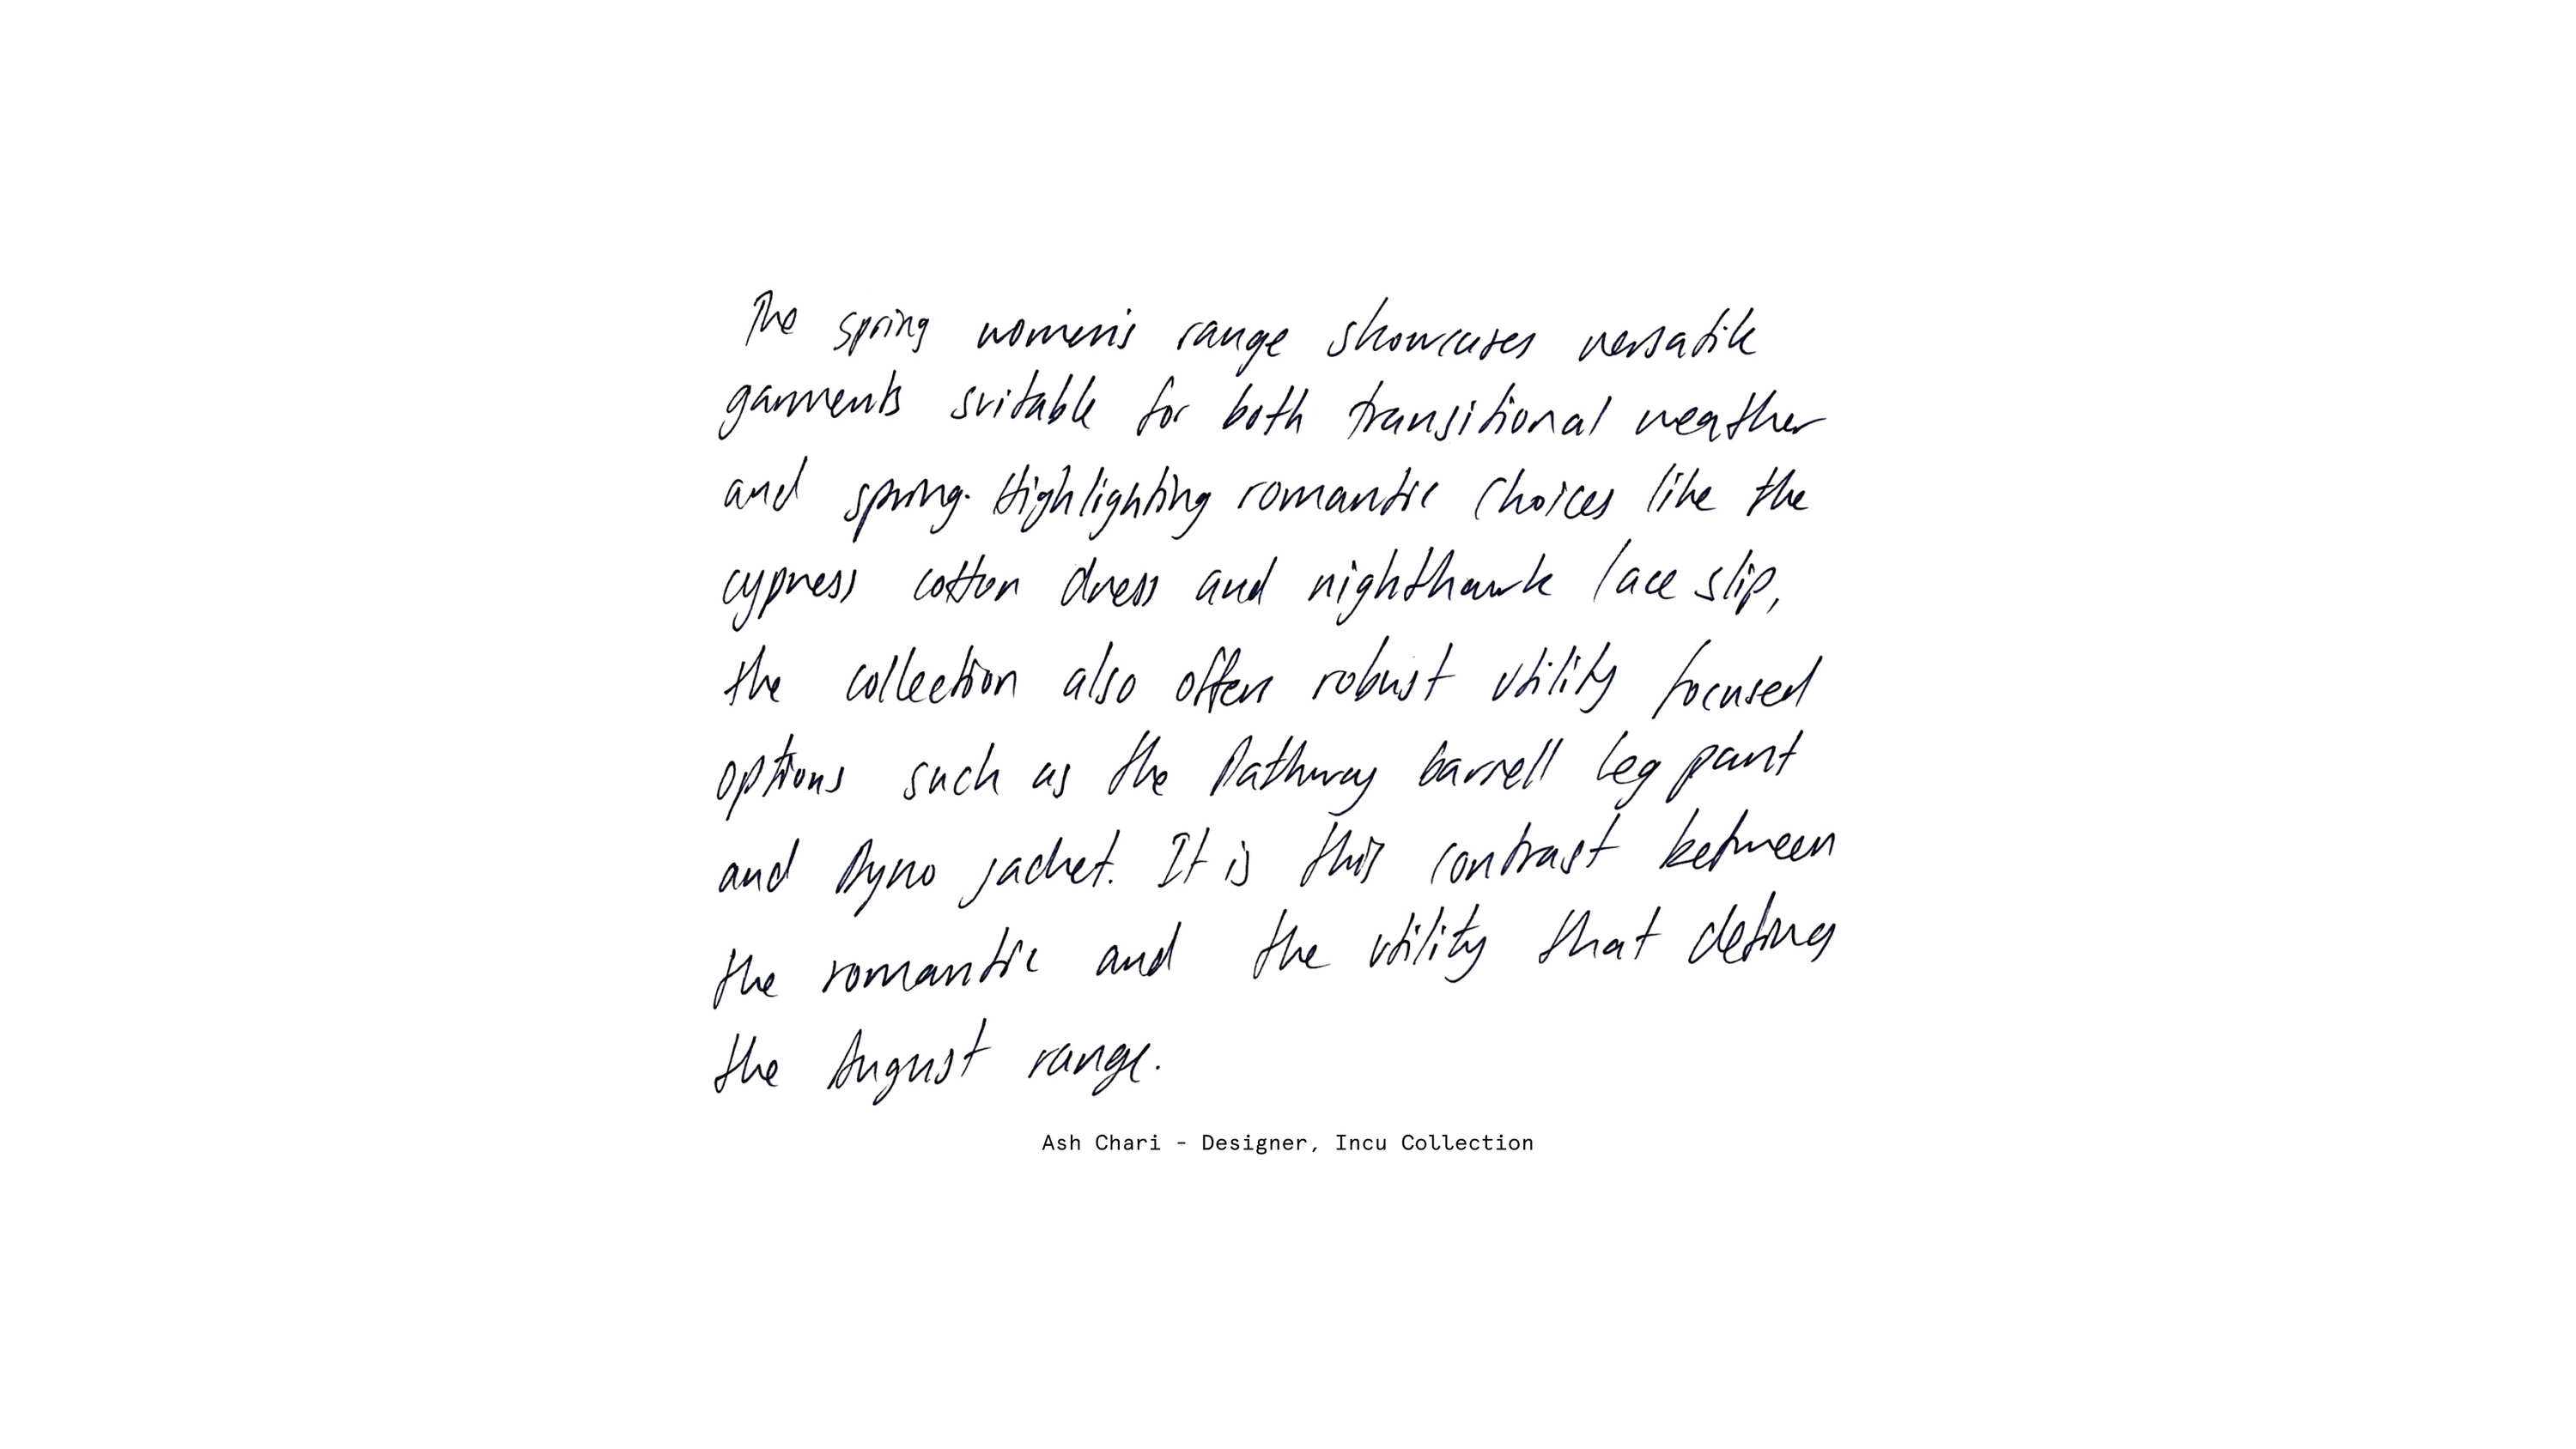 The spring women's range showcases versatile
garments suitable for both transitional weather
and spring. Highlighting romantic choices like the
cypress cotton dress and nighthawk lace slip,
the collection also offers robust utility focused
options such as the Pathway barrell leg pant
and Dyno jacket. It is this contrast between
the romantic and the utility that defines
the August range.
Ash Chari - Designer, Incu Collection